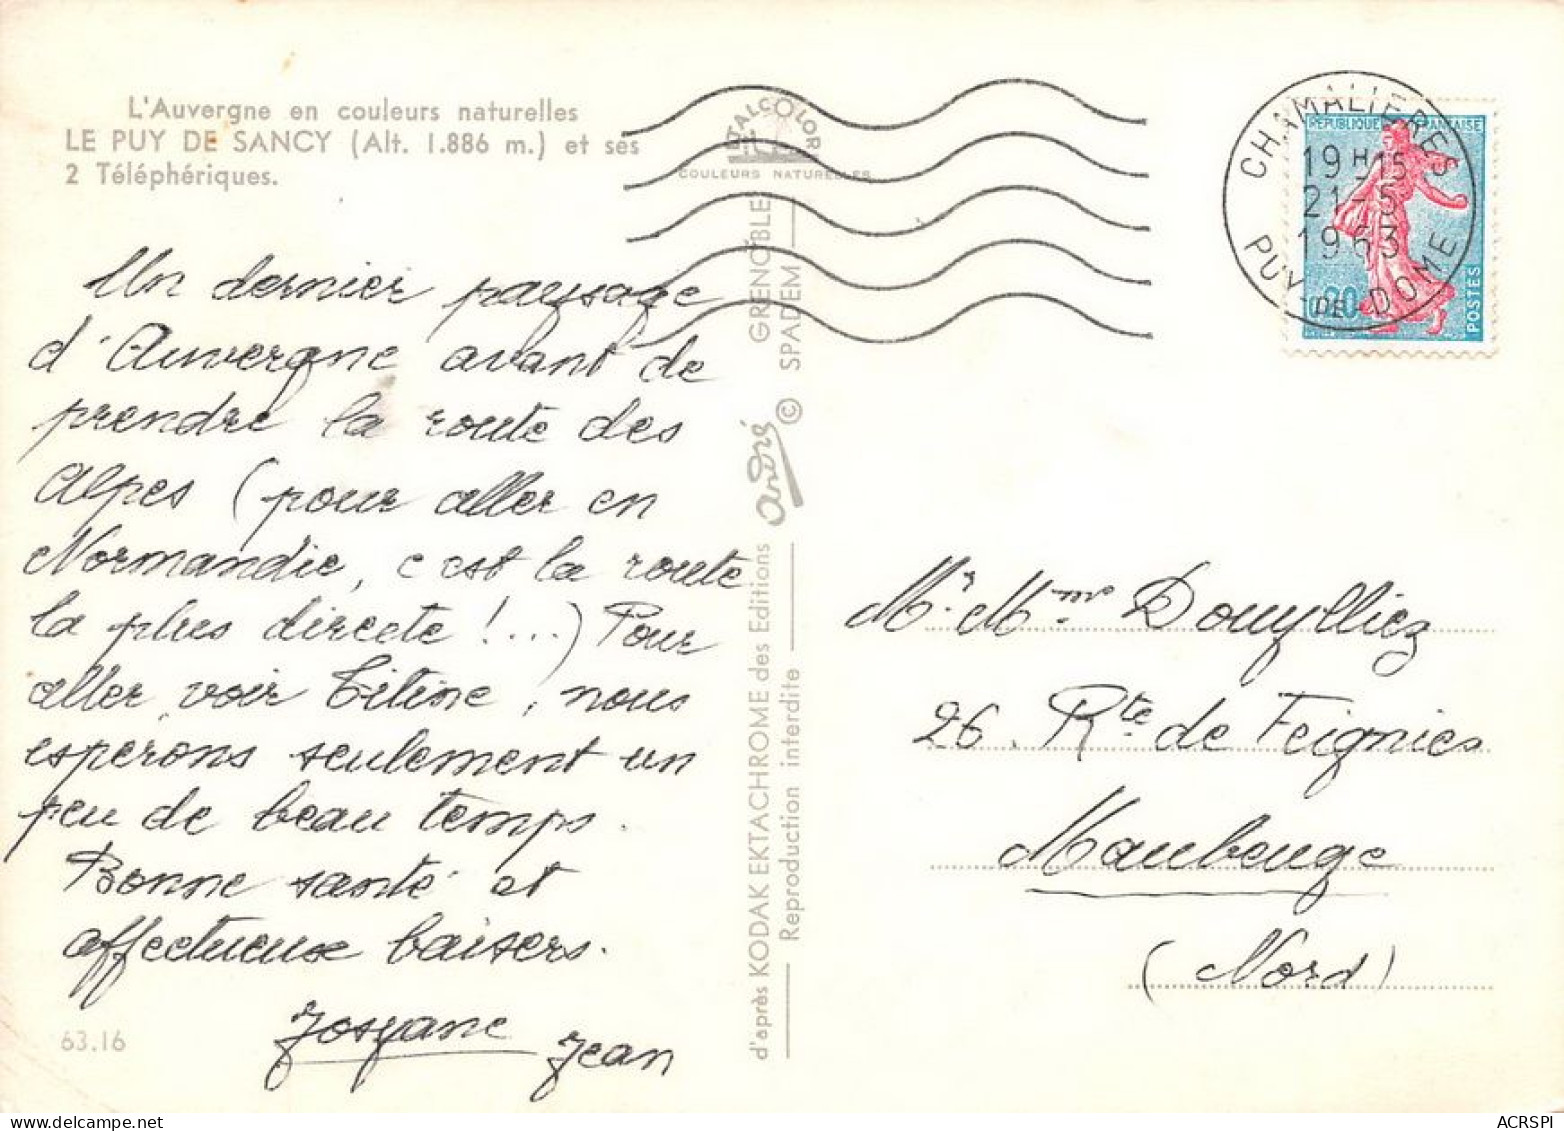 L'Auvergne en couleurs naturelles
LE PUY DE SANCY (Alt. 1.886 m.) et ses
2 Téléphériques.
Un dernier paysage
d'Auvergne avant de
prendre la route des
Alpes (pour aller en
Normandie, c'est la route
la plus directe !...) Pour
aller voir Titine, nous
esperons seulement un
peu de beau temps.
Bonne santé et
affectueux baisers.
Josyane
Jean
63.16
ETALCOLOR
COULEURS NATURELLES
d'après KODAK EKTACHROME des Editions André GRENOBLE
Reproduction interdite © SPADEM
CHAMALIERES
19 H 15
21-5
1963
PUY-DE-DOME
REPUBLIQUE FRANÇAISE
0,20
POSTES
Mr. Mme Douylliez
26. Rte de Feignies
Maubeuge
(Nord)
ACRSPI